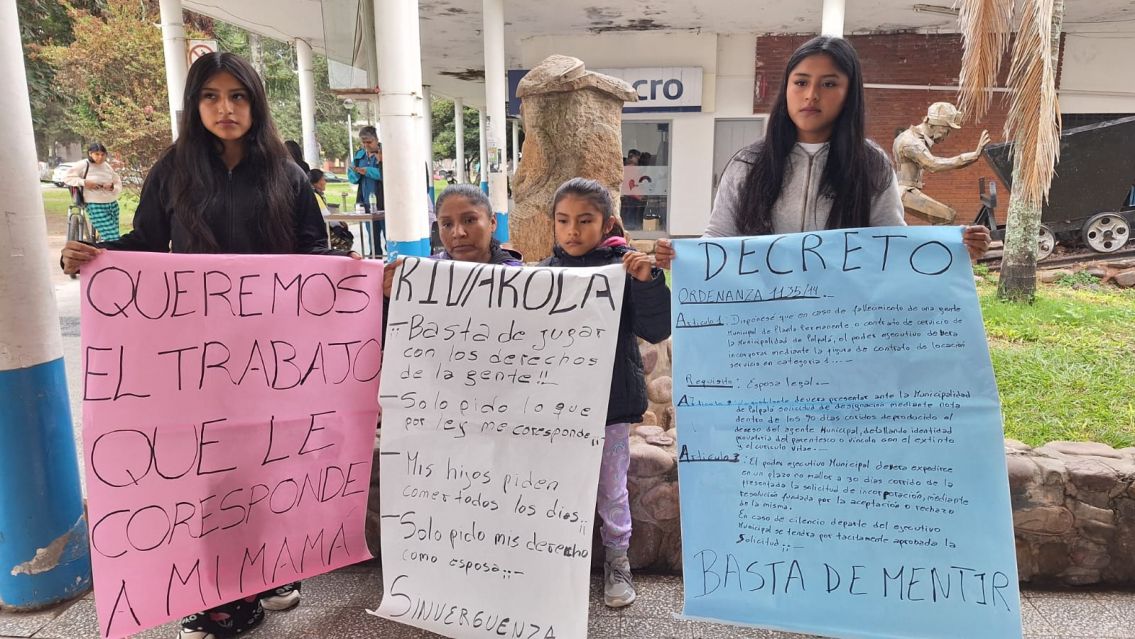 cro
QUEREMOS
EL TRABAJO
QUE LE
CORESPONDE
A MI MAMÁ
RIVAROLA
¡¡Basta de jugar
con los derechos
de la gente!!
- Solo pido lo que
por ley me corresponde¡¡
- Mis hijos piden
comer todos los dias¡¡
- Solo pido mis derecho
como esposa¡¡-
SINVERGUENZA
DECRETO
ORDENANZA 1135/14.-
Articulo 1: Disponese que en caso de fallecimiento de una gente
Municipal de Planta Permanente o contrato de servicio de
la Municipalidad de Palpalá, el poder ejecutivo debera
incorporar mediante la figura de contrato de locación
servicio en categoria 1.--
Requisito: Esposa legal.-
debera presentar ante la Municipalidad
de Palpalá solicitud de designación mediante nota
dentro de los 90 dias corridos deproducido el
deceso del agente Municipal, detallando identidad
parentesco o vinculo con el extinto
y el curiculo vitae.-
Articulo 3: El poder ejecutivo Municipal devera expedirce
en un plazo no mallor a 30 dias corrido de la
presentada la solicitud de incorporación, mediante
resolución fundada por la aceptación o rechazo
de la misma.
En caso de cilencio departe del executivo
Municipal se tendra por tacitamente aprobada la
Solicitud¡¡-
BASTA DE MENTIR